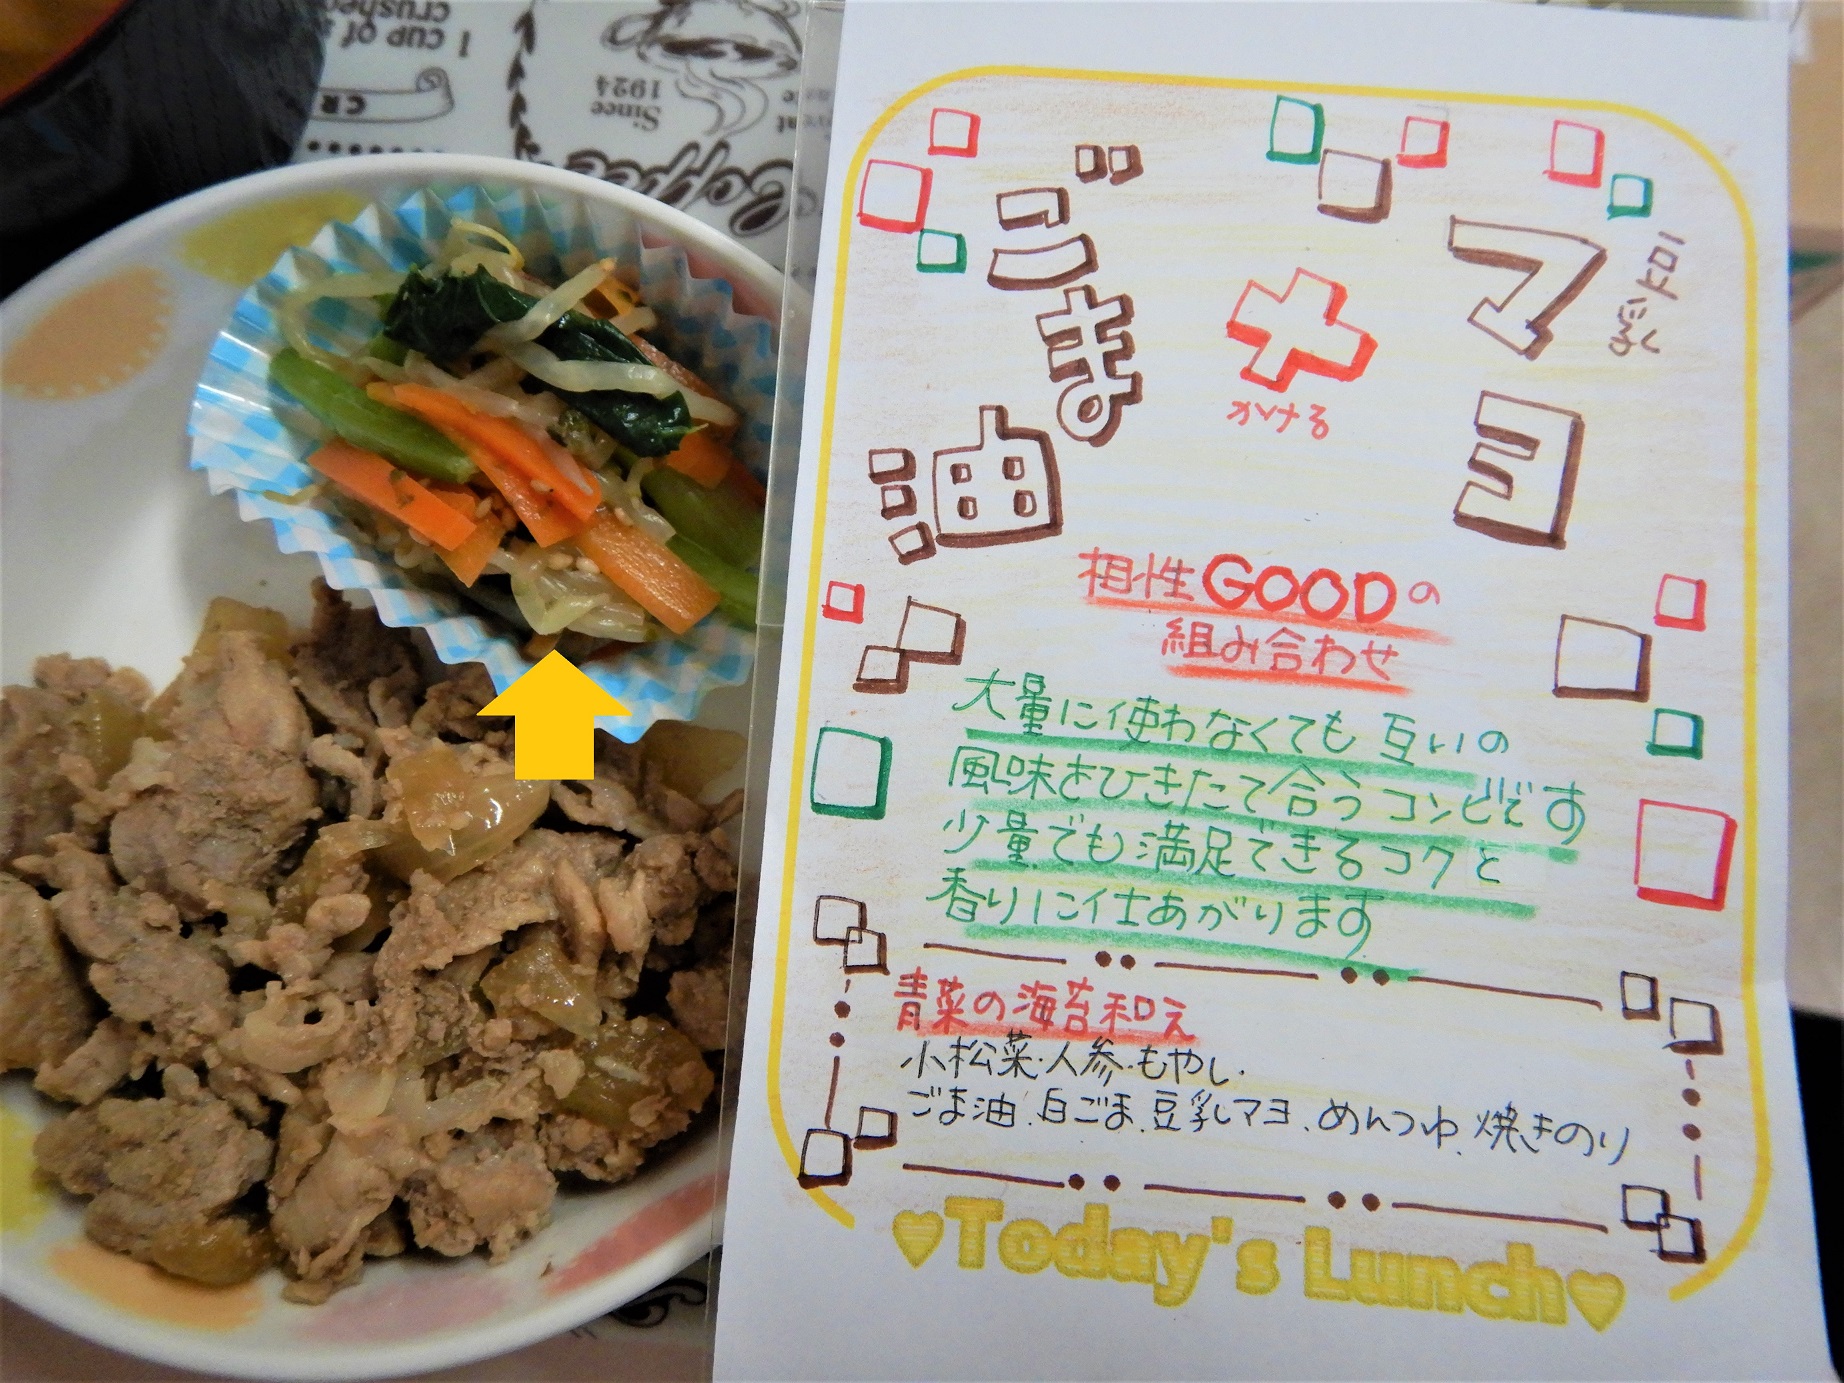 1 CUP OF
crushed
CR
Since
1924
Coffee
ごま油
×
かける
マヨ
豆乳
相性GOODの
組み合わせ
大量に使わなくても 互いの
風味をひきたて合うコンビです
少量でも満足できるコクと
香りに仕あがります
青菜の海苔和え
小松菜・人参・もやし・
ごま油、白ごま、豆乳マヨ、めんつゆ、焼きのり
♥Today's Lunch♥